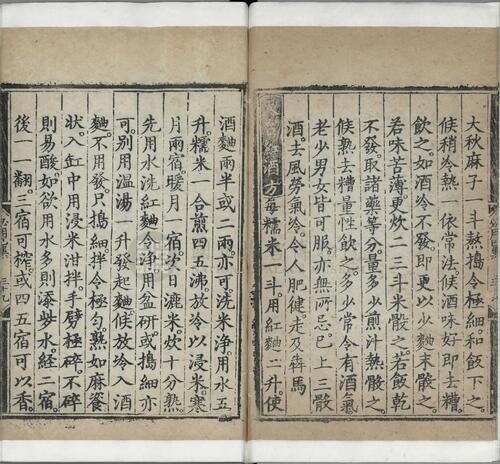 大秋麻子一斗熟搗令細和飯下之。
候稍冷熱一依常法。候酒味好即去糟。
飲之。如酒冷不發即更以少麴末骰之。
若味苦薄更炊二三斗米骰之。若飯乾
不發。取諸藥等分量多少煎汁熱骰之。
候熟去糟量性飲之。多少常令有酒氣
老少男女皆可服。亦無所忌。已上三骰
酒。去風勞氣冷。令人肥健。走及犇馬
酒方每糯米一斗用紅麴二升。使
酒麴兩半或二兩亦可。洗米淨。用水五
升。糯米一合煎四五沸放冷以浸米。寒
月兩宿。暖月一宿。次日漉米。炊十分熟。
先用水洗紅麴令淨。用盆研或搗細亦
可。別用溫湯 升發起麴。候放冷入酒
麴。不用發。只搗細拌令極勻。熟如麻餈
狀。入缸中用浸米泔拌。手擘極碎。不碎
則易酸。如欲用水多則添些水。經二宿。
後一一翻。三宿可榨。或四五宿可以香。